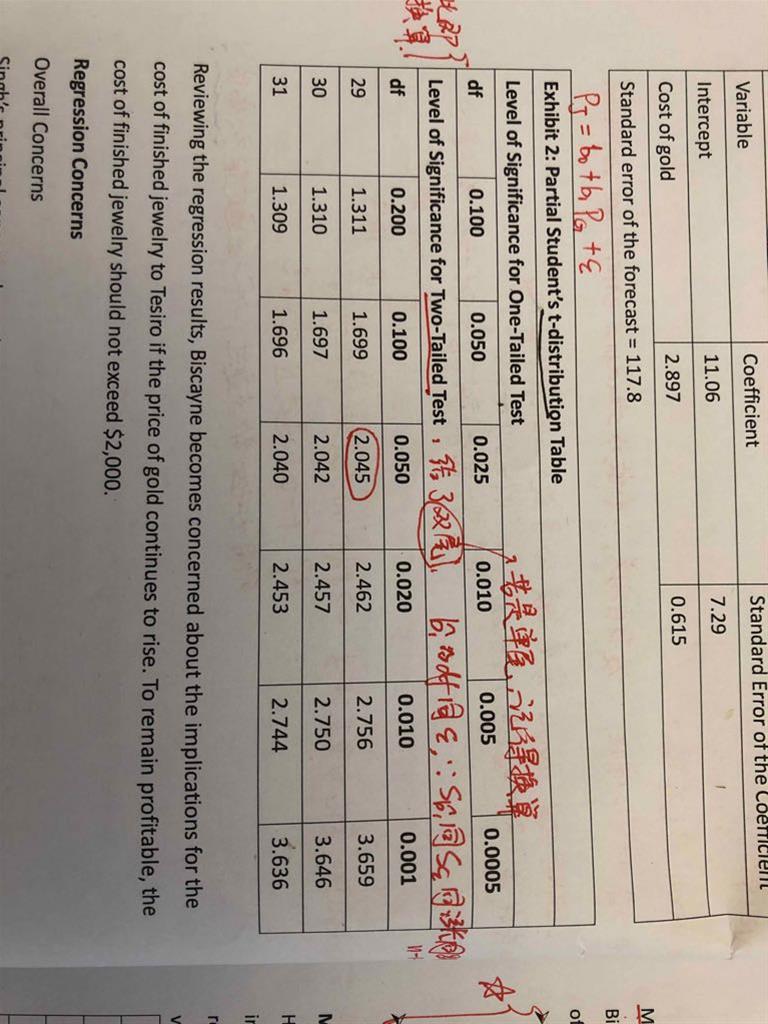 Variable Coefficient Standard Error of the Coefficient
Intercept 11.06 7.29
Cost of gold 2.897 0.615
Standard error of the forecast = 117.8
P_J = b₀ + b₁ P_G + ε
Exhibit 2: Partial Student's t-distribution Table
若是单尾,记得换算
Level of Significance for One-Tailed Test
df 0.100 0.050 0.025 0.010 0.005 0.0005
Level of Significance for Two-Tailed Test
双尾
b₁ 的 df 同 ε, ∴ Sb₁ 同
df 0.200 0.100 0.050 0.020 0.010 0.001
29 1.311 1.699 2.045 2.462 2.756 3.659
30 1.310 1.697 2.042 2.457 2.750 3.646
31 1.309 1.696 2.040 2.453 2.744 3.636
换算
Reviewing the regression results, Biscayne becomes concerned about the implications for the
cost of finished jewelry to Tesiro if the price of gold continues to rise. To remain profitable, the
cost of finished jewelry should not exceed $2,000.
Regression Concerns
Overall Concerns
Singh's principal
M
Bi
of